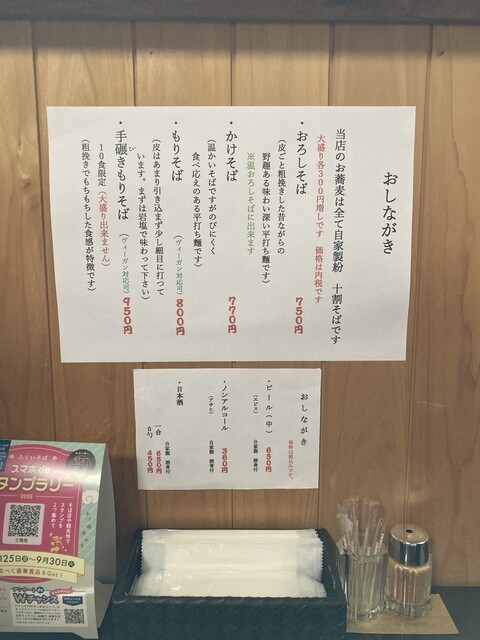 おしながき
当店のお蕎麦は全て自家製粉　十割そばです
大盛り各300円増しです　価格は内税です
・おろしそば　750円
（皮ごと粗挽きした昔ながらの
野趣ある味わい深い平打ち麺です）
※温おろしそばに出来ます
・かけそば　770円
（温かいそばですがのびにくく
食べ応えのある平打ち麺です）
・もりそば（ヴィーガン対応可）800円
（皮はあまり引き込まず少し細目に打って
います。まずは岩塩で味わって下さい）
・手碾きもりそば（ヴィーガン対応可）950円
10食限定（大盛り出来ません）
（粗挽きでもちもちした食感が特徴です）
おしながき
価格は税込みです。
・ビール（中）　650円
（ヱビス）　自家製　酒肴付
・ノンアルコール　360円
（アサヒ）　自家製　酒肴付
・日本酒
一合　650円
5勺　450円
自家製　酒肴付
ふくいそば
スマホde
タンプラリー
そば店や観光地で
スタンプを
2つ集めて
月25日～9月30日
食べて豪華賞品をGet!
Wチャンス